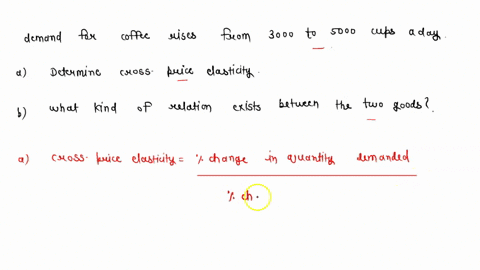 demand for coffee rises from 3000 to 5000 cups a day.
a) Determine cross-price elasticity.
b) what kind of relation exists between the two goods?
a) cross-price elasticity = % change in quantity demanded
% ch.